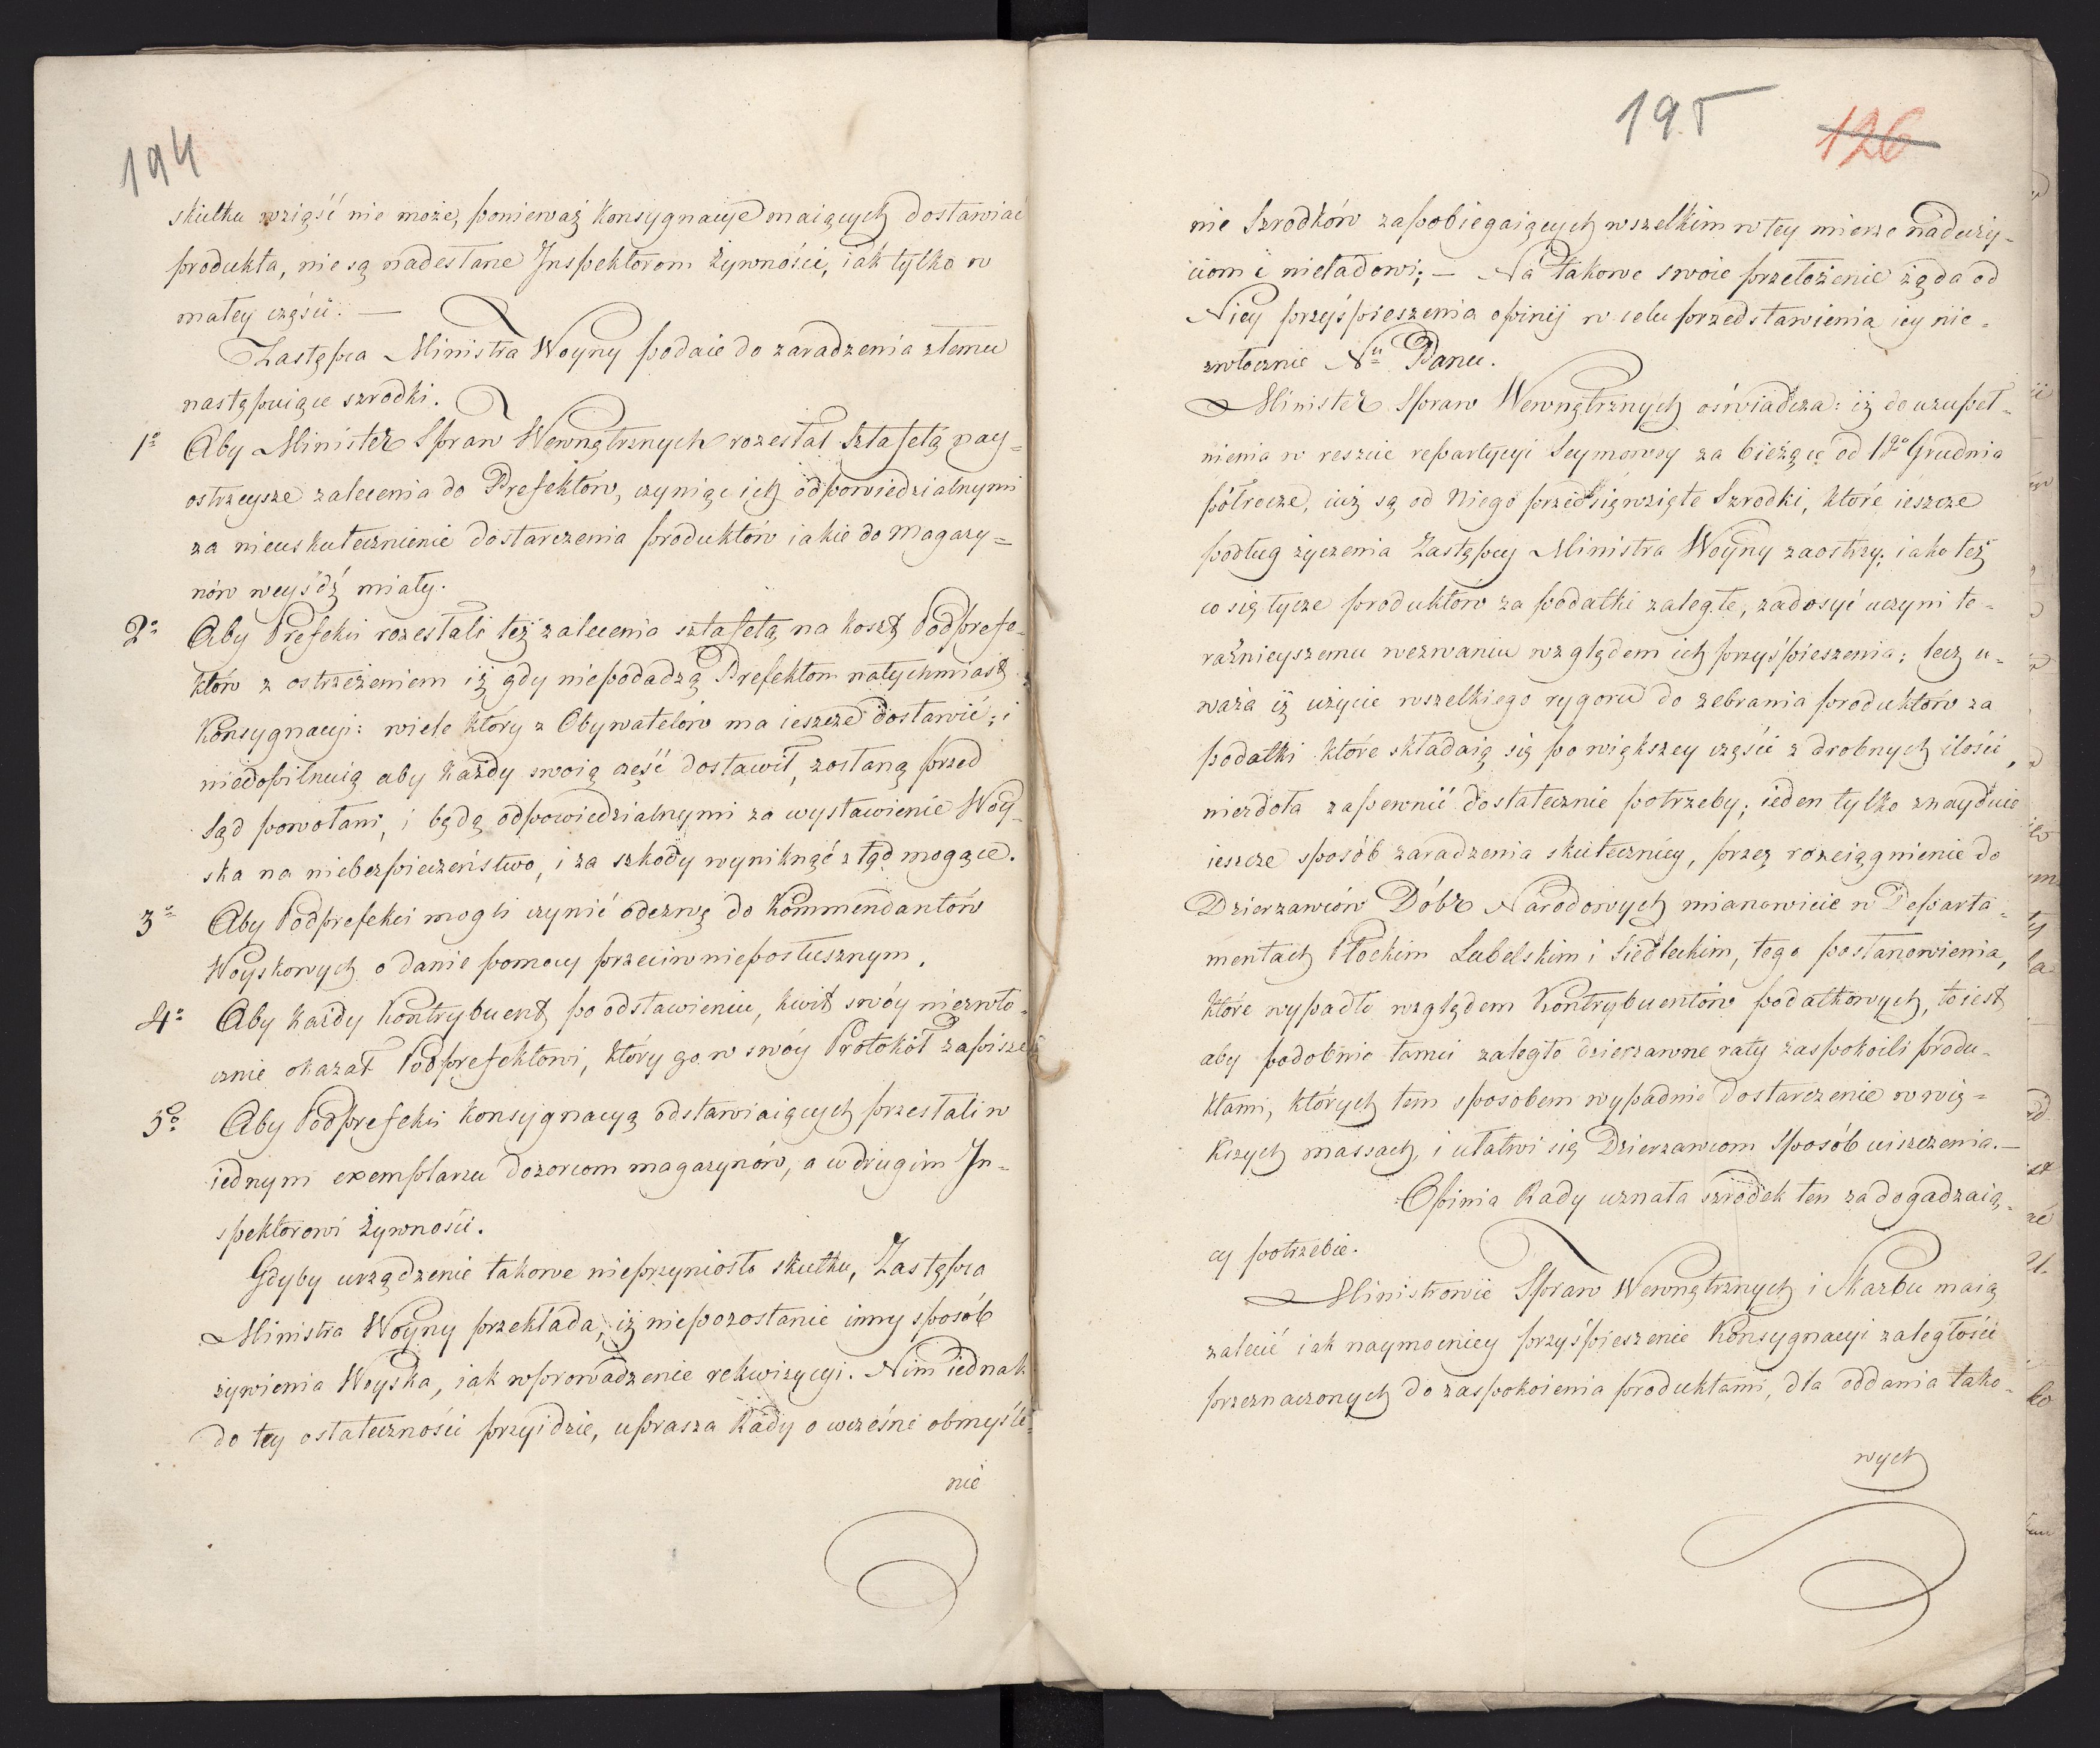 194
skutku wziąść nie może, ponieważ Konsygnacye maiących dostawiać
produkta, nie są nadesłane Inspektorom Żywności, iak tylko w
małey części. —
Zastępca Ministra Woyny podaie do zaradzenia złemu
następuiące szrodki.
1o Aby Minister Spraw Wewnętrznych rozesłał Sztafetą nay=
ostrzeysze zalecenia do Prefektów, czyniąc ich odpowiedzialnymi
za nieuskutecznienie dostarczenia produktów iakie do Magazy=
nów weyśdź miały.
2o Aby Prefekci rozesłali też zalecenia sztafetą na koszt Podprefe=
któw z ostrzeżeniem iż gdy niepodadzą Prefektom natychmiast
Konsygnacyi: wiele który z Obywatelów ma ieszcze dostawić; i
niedopilnuią aby każdy swoią część dostawił, zostaną przed
Sąd powołani, i będą odpowiedzialnymi za wystawienie Woy=
ska na niebezpieczeństwo, i za szkody wyniknąć ztąd mogące.
3o Aby Podprefekci mogli czynić odezwę do Kommendantów
Woyskowych o danie pomocy przeciw nieposłusznym.
4o Aby każdy Kontrybuent po odstawieniu, kwit swóy niezwło=
cznie okazał Podprefektowi, który go w swóy Protokół zapisze
5o Aby Podprefekci konsygnacyą odstawiaiących przesłali w
iednym exemplarzu dozorcom magazynów, a w drugim In=
spektorowi Żywności.
Gdyby urządzenie takowe nieprzyniosło skutku, Zastępca
Ministra Woyny przekłada, iż niepozostanie inny sposób
żywienia Woyska, iak wprowadzenie rekwizycyi. Nim iednak
do tey ostateczności przyidzie, uprasza Rady o wcześne obmyśle=
nie
195 126
nie Szrodków zapobiegaiących wszelkim w tey mierze naduży=
ciom i nieładowi; — Na takowe swoie przełożenie żąda od
Niey przyśpieszenia opinij w celu przedstawienia iey nie=
zwłocznie Nu Panu.
Minister Spraw Wewnętrznych oświadcza: iż do uzupeł=
nienia w reszcie repartycyi Seymowey za bieżące od 1go Grudnia
półrocze, iuż są od Niego przedsięwzięte Szrodki, które ieszcze
podług życzenia Zastępcy Ministra Woyny zaostrzy; iako też
co się tycze produktów za podatki zaległe, zadosyć uczyni te=
raźnieyszemu wezwaniu względem ich przyśpieszenia; lecz u=
waża iż użycie wszelkiego rygoru do zebrania produktów za
podatki które składaią się po większey części z drobnych ilości,
niezdoła zapewnić dostatecznie potrzeby; ieden tylko znayduie
ieszcze sposób zaradzenia skuteczniey, przez rozciągnienie do
Dzierzawców Dóbr Narodowych mianowicie w Departa=
mentach Płockim Lubelskim i Siedleckim, tego postanowienia,
które wypadło względem Kontrybuentów podatkowych, to iest
aby podobnie tamci zaległe dzierzawne raty zaspokoili produ=
ktami, których tem sposobem wypadnie dostarczenie w wię=
kszych massach, i ułatwi się Dzierzawcom Sposób uiszczenia. —
Opinia Rady uznała szrodek ten za dogadzaią=
cy potrzebie.
Ministrowie Spraw Wewnętrznych i Skarbu maią
zalecić iak naymocniey przyśpieszenie Konsygnacyi zaległości
przeznaczonych do zaspokoienia produktami, dla oddania tako=
wych